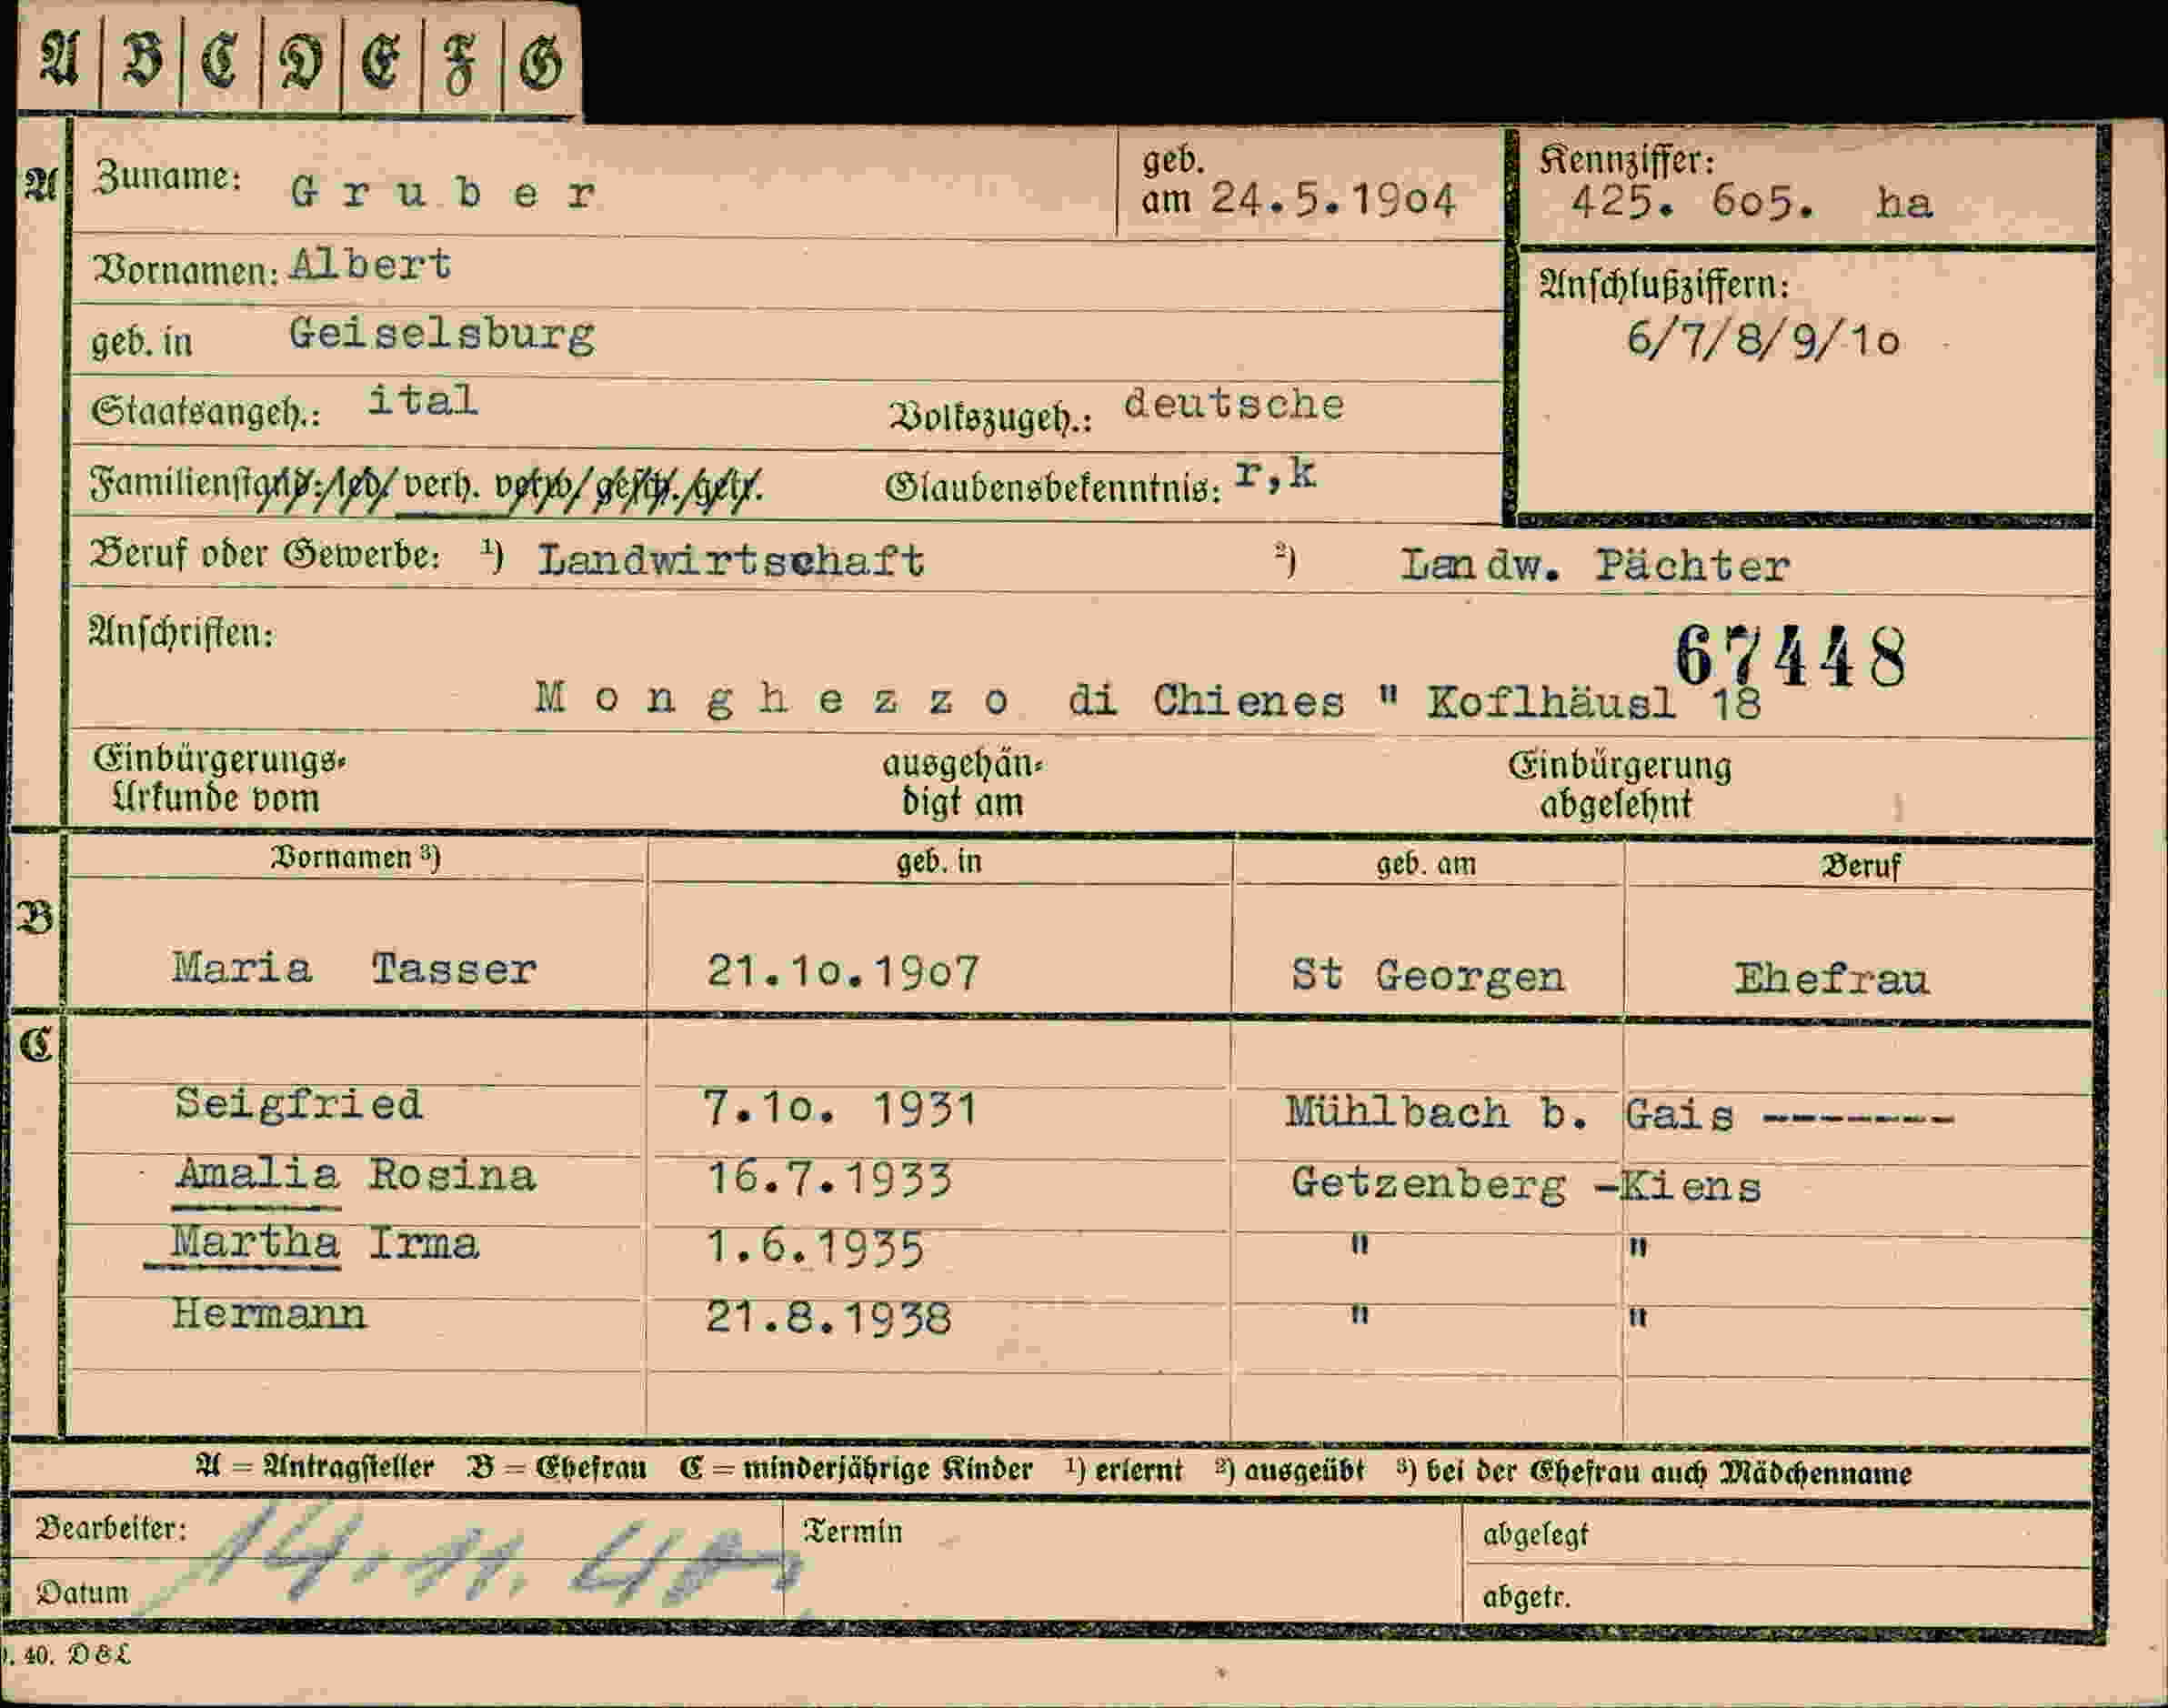 A B C D E F G
A Zuname: Gruber geb. am 24.5.19o4 Kennziffer: 425. 6o5. ha
Vornamen: Albert Anschlußziffern:
geb. in Geiselsburg 6/7/8/9/1o
Staatsangeh.: ital Volkszugeh.: deutsche
Familienstand: led/ verh. verw/ gesch./getr. Glaubensbekenntnis: r,k
Beruf oder Gewerbe: ¹) Landwirtschaft ²) Landw. Pächter
Anschriften: 67448
Monghezzo di Chienes " Koflhäusl 18
Einbürgerungs- ausgehän- Einbürgerung
Urkunde vom digt am abgelehnt
Vornamen ³) geb. in geb. am Beruf
B
Maria Tasser 21.1o.19o7 St Georgen Ehefrau
C
Seigfried 7.1o. 1931 Mühlbach b. Gais -------
Amalia Rosina 16.7.1933 Getzenberg -Kiens
Martha Irma 1.6.1935 " "
Hermann 21.8.1938 " "
A = Antragsteller B = Ehefrau C = minderjährige Kinder ¹) erlernt ²) ausgeübt ³) bei der Ehefrau auch Mädchenname
Bearbeiter: 14.11.40 Termin abgelegt
Datum abgetr.
40. D&L